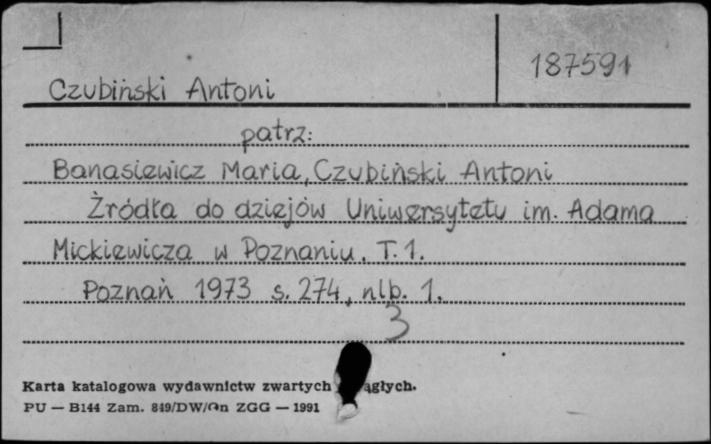 187591
Czubiński Antoni
patrz:
Banasiewicz Maria, Czubiński Antoni
Źródła do dziejów Uniwersytetu im. Adama
Mickiewicza w Poznaniu. T. 1.
Poznań 1973 s. 274, nlb. 1.
3
Karta katalogowa wydawnictw zwartych ągłych.
PU — B144 Zam. 849/DW/ ZGG — 1991